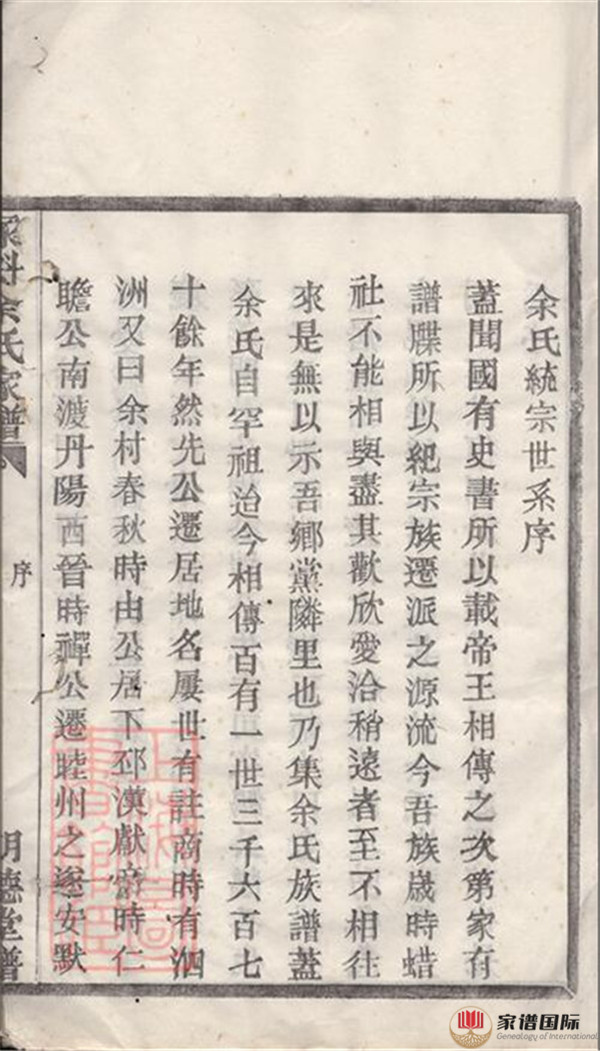 余氏統宗世系序
蓋聞國有史書所以載帝王相傳之次第家有
譜牒所以紀宗族遷派之源流今吾族歲時蜡
社不能相與盡其歡欣愛洽稍遠者至不相往
來是無以示吾鄉黨隣里也乃集余氏族譜蓋
余氏自罕祖迨今相傳百有一世三千六百七
十餘年然先公遷居地名屢世有註商時有泗
洲又曰余村春秋時由公居下邳漢獻帝時仁
瞻公南渡丹陽西晉時禪公遷睦州之遂安默
余氏家譜
序
明德堂譜
家谱国际
Genealogy of International